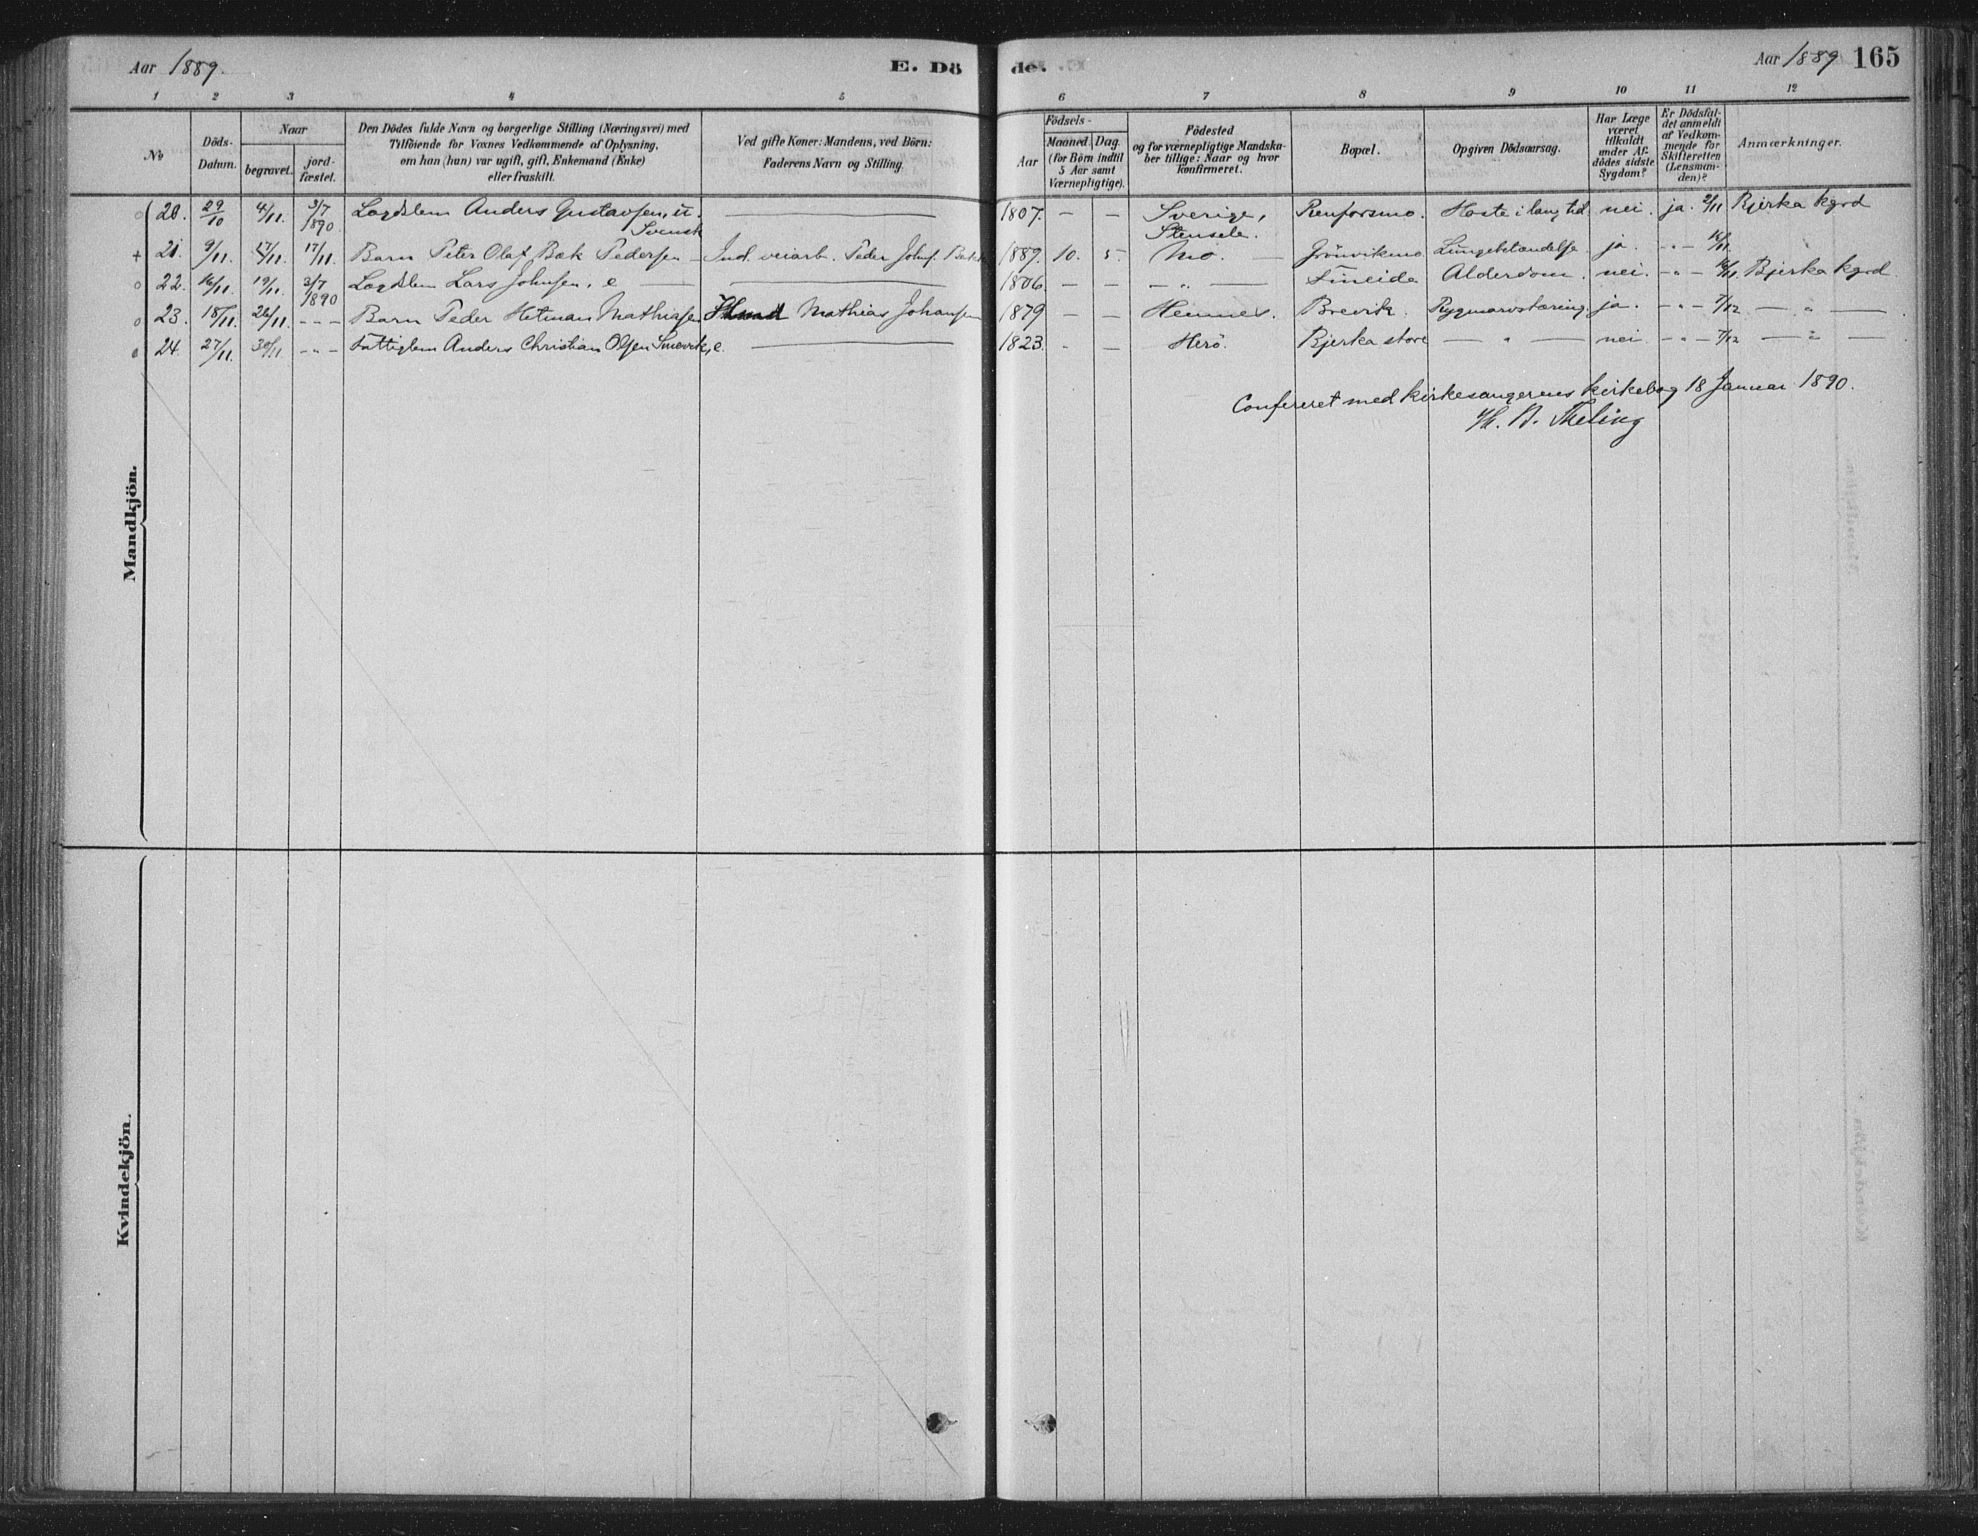 Aar 1889. E. Dö de. Aar 1889 165
1 2 3 4 5 6 7 8 9 10 11 12
No
Döds-
Datum.
Naar
begravet.
jord-
fæstet.
Den Dödes fulde Navn og borgerlige Stilling (Næringsvei) med
Tilföiende for Voxnes Vedkommende af Oplysning,
om han (hun) var ugift, gift, Enkemand (Enke)
eller fraskilt.
Ved gifte Koner: Mandens, ved Börn:
Faderens Navn og Stilling.
Födsels-
Aar
Maaned.
Dag.
(for Börn indtil
5 Aar samt
Værnepligtige).
Födested
og for værnepligtige Mandska-
ber tillige: Naar og hvor
konfirmeret.
Bopæl.
Opgiven Dödsaarsag.
Har Læge
været
tilkaldt
under Af-
dödes sidste
Sygdom?
Er Dödsfal-
det anmeldt
af Vedkom-
mende for
Skifteretten
(Lensman-
den)?
Anmærkninger.
20. 29/10 4/11. 3/7 1890. Lægdslem Anders Gustavsen, u. Svensk — 1807. — — Sverige, Stensele. Renforsmo. Hoste i lang tid nei. ja. 2/11 Bjerka kgrd
21. 9/11. 17/11. 17/11. Barn Peter Olaf Bæk Pedersen — Ind. veiarb. Peder Johns. Bæk 1889. 10. 5. Mo. — Grönvikmo Lungebetændelse ja. -"- 16/11.
22. 16/11. 19/11. 3/7 1890 Lægdslem Lars Johnsen, e — 1806. — — — " — Sneide Alderdom. nei. -"- 18/11. Bjerka kgrd
23. 18/11. 26/11. - - - Barn Peder Hetman Mathiasen Mathias Johansen 1879 — — Hemnes. Brevik. Rygmarvstæring ja. -"- 7/12 — " —
24. 27/11. 30/11. -"- Fattiglem Anders Christian Olsen Smevik, e. — 1823. - — Herö. Bjerka store — " — nei. -"- 7/12 — " —
Confereret med kirkesangerens kirkebog 18 Januar 1890.
Mandkjön.
Kvindekjön.